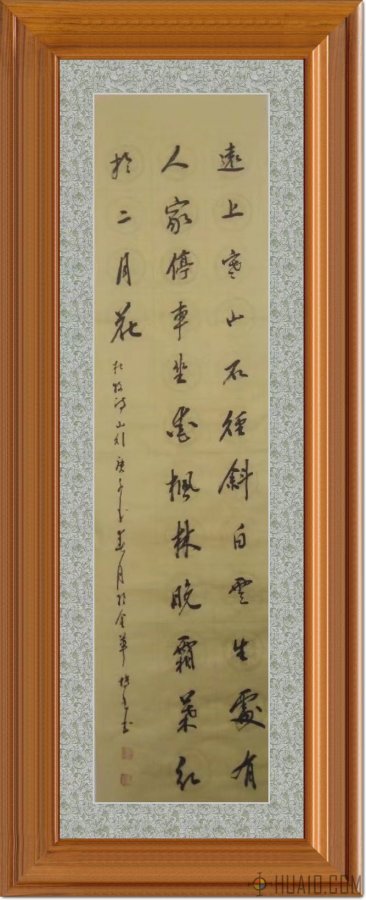 遠上寒山石徑斜白雲生處有
人家停車坐愛楓林晚霜葉紅
於二月花
杜牧詩山行庚子
月於金華
HUAID.COM